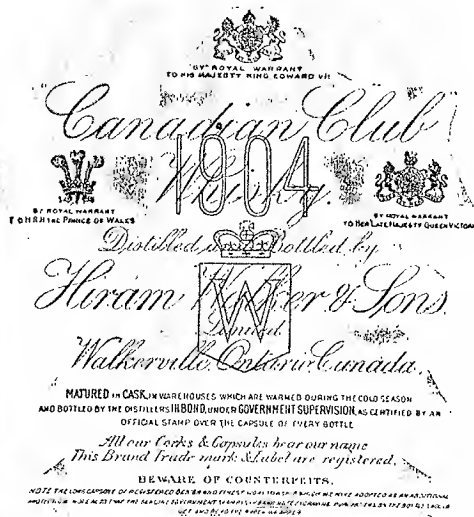 BY ROYAL WARRANT
TO HIS MAJESTY KING EDWARD VII
Canadian Club
1904
Whisky.
BY ROYAL WARRANT
TO H.R.H. THE PRINCE OF WALES
BY ROYAL WARRANT
TO HER LATE MAJESTY QUEEN VICTORIA
Distilled and bottled by
Hiram Walker & Sons.
W
Limited
Walkerville, Ontario, Canada.
MATURED IN CASK, IN WAREHOUSES WHICH ARE WARMED DURING THE COLD SEASON
AND BOTTLED BY THE DISTILLERS IN BOND, UNDER GOVERNMENT SUPERVISION, AS CERTIFIED BY AN
OFFICIAL STAMP OVER THE CAPSULE OF EVERY BOTTLE
All our Corks & Capsules bear our name
This Brand Trade mark & Label are registered.
BEWARE OF COUNTERFEITS.
NOTE THE LONG CAPSULE OF REGISTERED DESIGN AND WE HAVE ADOPTED AS AN ADDITIONAL
PROTECTION. NOTE ALSO THAT THE GENUINE GOVERNMENT STAMP